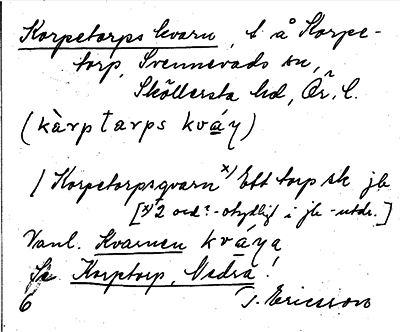 Korpetorps kvarn, t. å Korpe-
torp, Svennevads sn,
Sköllersta hd, Ör. l.
(kàrptarps kváɳ)
/ Korpetorpsqvarn x) Ett torp sk jb
[x) 2 ord? - otydligt i jb - utdr.]
Vanl. Kvarnen kváɳa
Se Korptorp, Nedra!
6 T. Ericsson